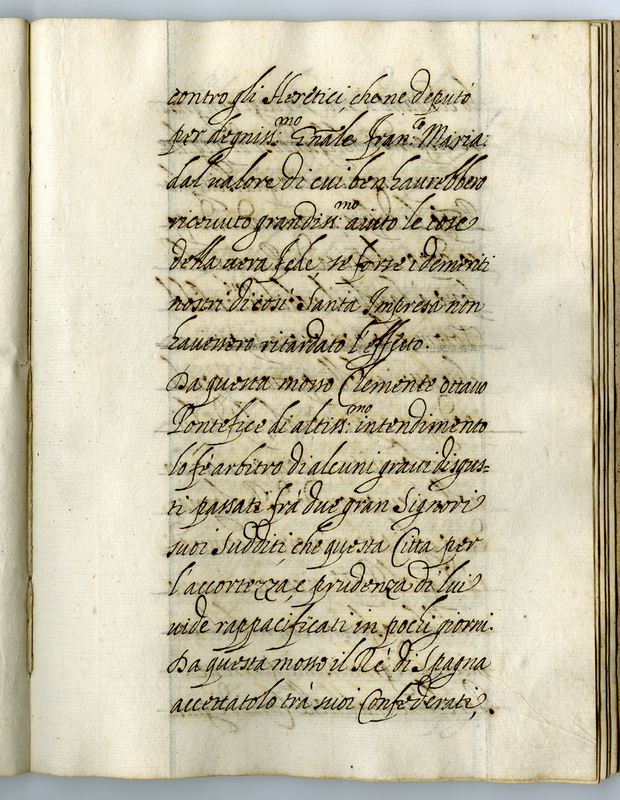 contro gli Heretici, che ne deputò
per degniss:mo Gñale Fran:co Maria:
dal ualore di cui ben haurebbero
riceuuto grandiss:mo aiuto le cose
della uera Fede, se forse i demeriti
nostri di così Santa Impresa non
hauessero ritardato l'effetto.
Da questa mosso Clemente ottauo
Pontefice di altiss:mo intendimento
lo fè arbitro di alcuni graui disgus=
ti passati frà due gran Signori
suoi sudditi, che questa Città per
l'accortezza, e prudenza di lui
uide rappacificati in pochi giorni.
Da questa mosso il Rè di Spagna
accettatolo trà suoi Confederati,